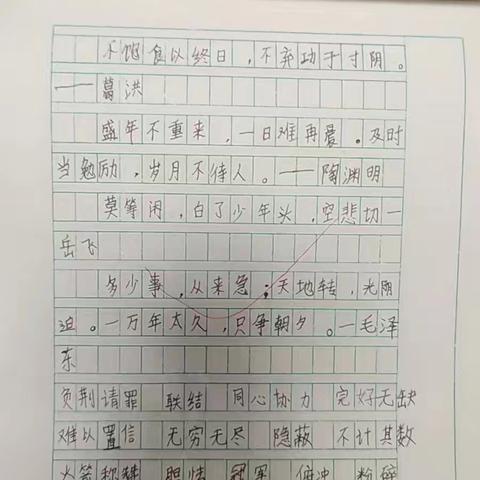 不饱食以终日，不弃功于寸阴。
——葛洪
盛年不重来，一日难再晨。及时
当勉励，岁月不待人。——陶渊明
莫等闲，白了少年头，空悲切一
岳飞
多少事，从来急；天地转，光阴
迫。一万年太久，只争朝夕。一毛泽
东
负荆请罪 联结 同心协力 完好无缺
难以置信 无穷无尽 隐蔽 不计其数
火箭 称赞 胆怯 冠军 俯冲 粉碎